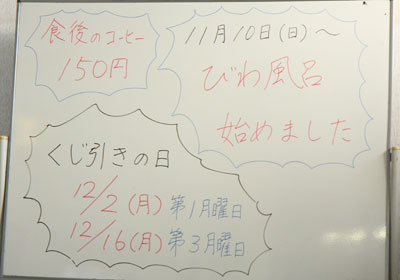 食後のコーヒー
150円
11月10日(日)～
びわ風呂
始めました
くじ引きの日
12/2(月)第1月曜日
12/16(月)第3月曜日